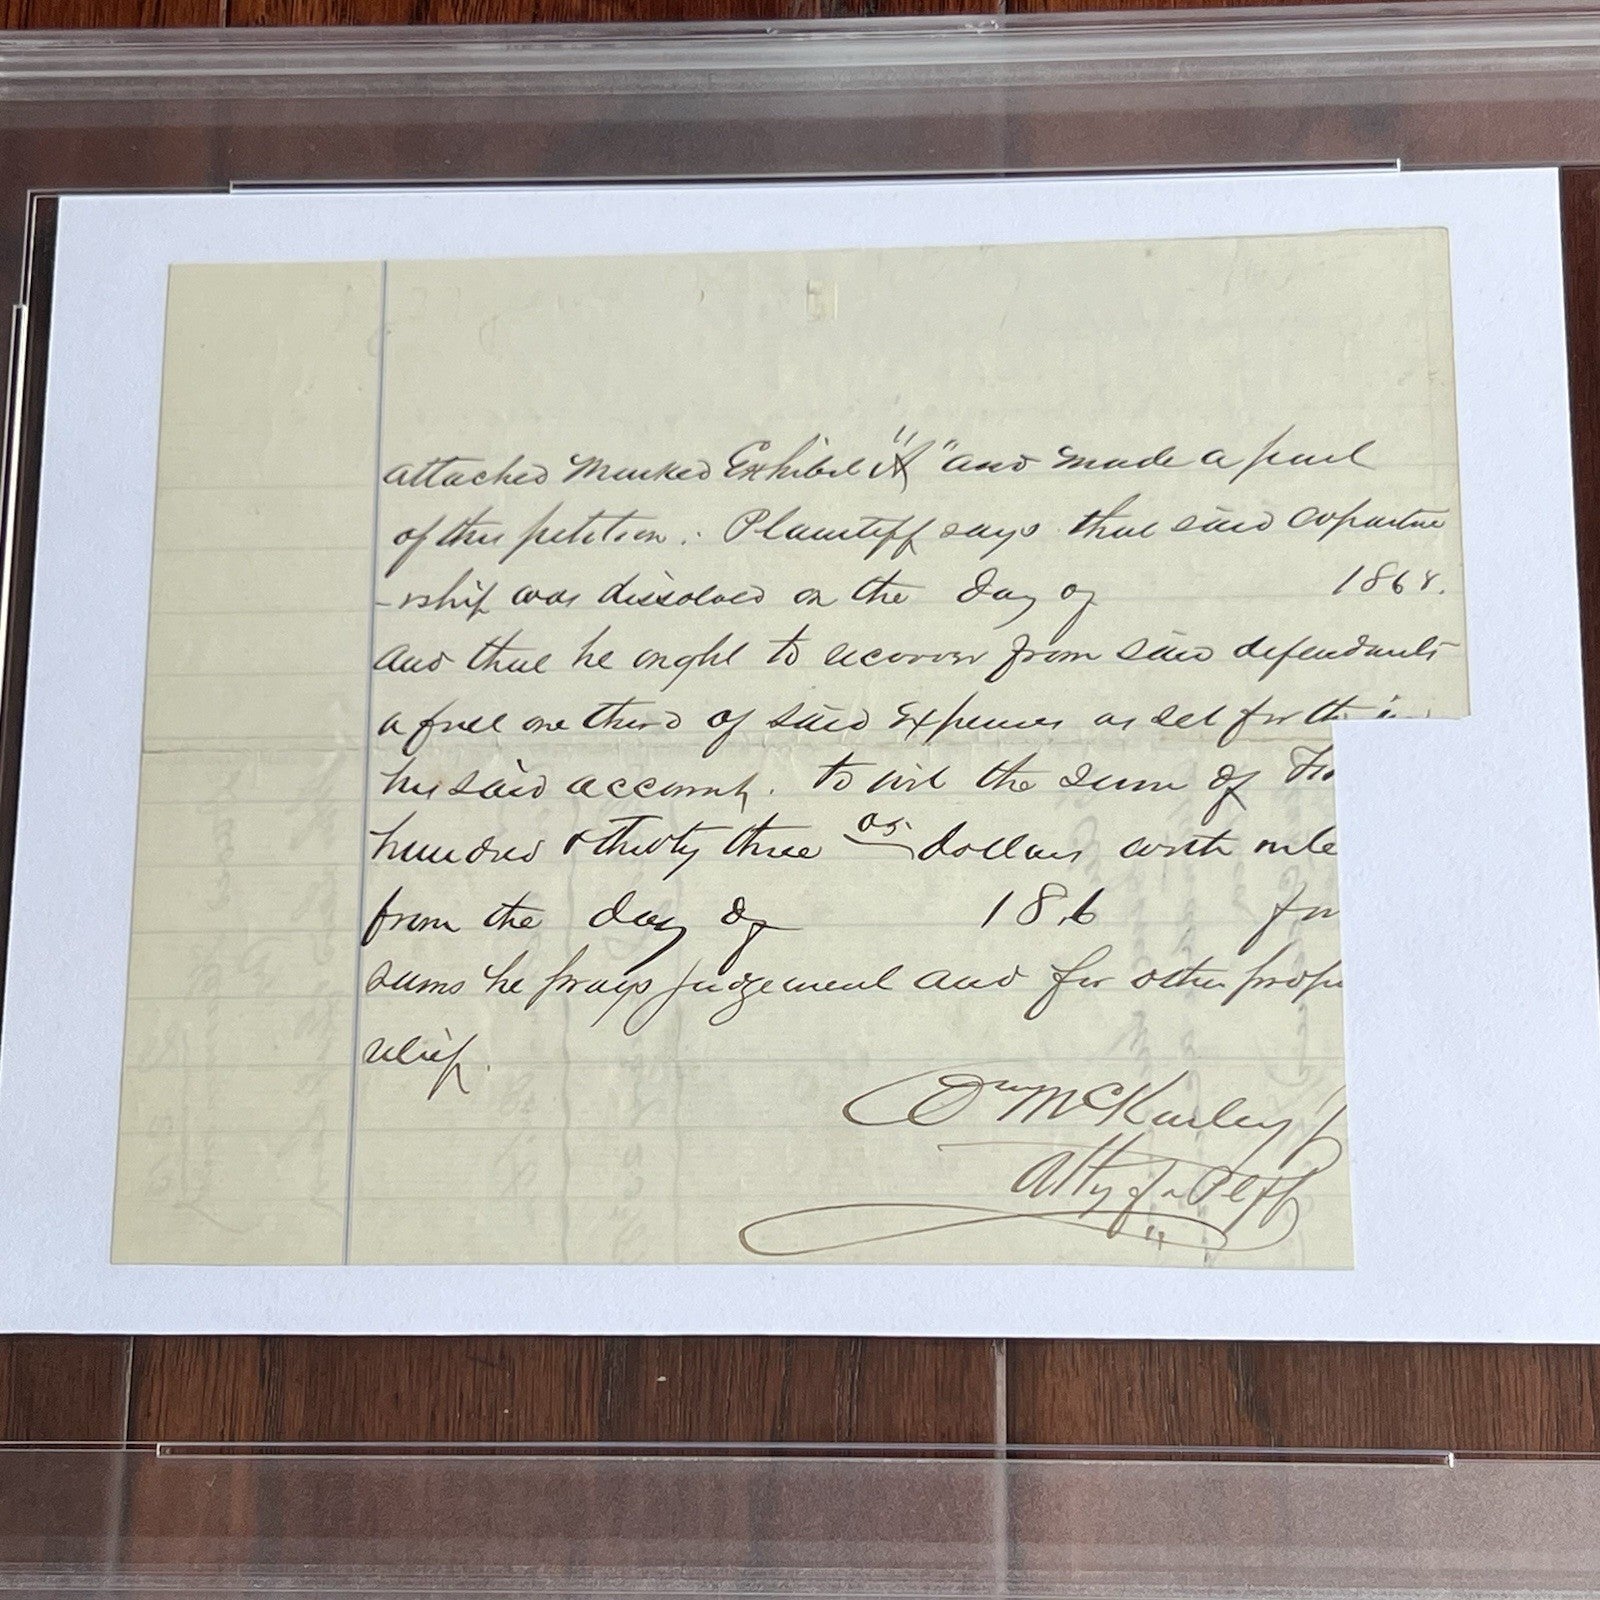 attached marked Exhibit "A" and made a part
of this petition. Plaintiff says that said copartne
-rship was dissolved on the day of 1868.
and that he ought to recover from said defendants
a full one third of said expenses as set forth in
his said account. to wit the sum of
hundred & thirty three 05 dollars with
from the day of 186 for
sums he prays judgement and for other prope
relief.
Wm McKinley Jr
Atty for Plff